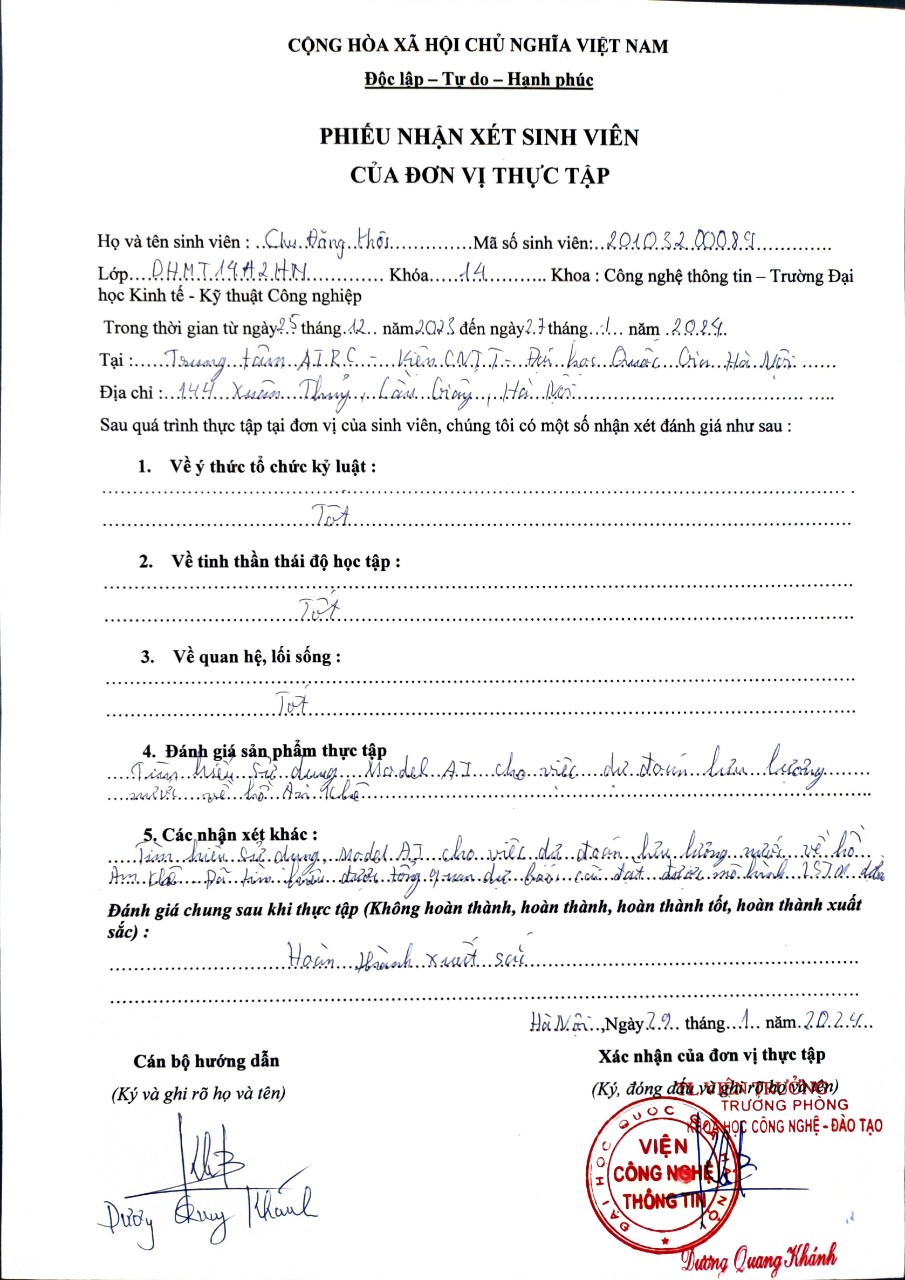 CỘNG HÒA XÃ HỘI CHỦ NGHĨA VIỆT NAM
Độc lập – Tự do – Hạnh phúc
PHIẾU NHẬN XÉT SINH VIÊN
CỦA ĐƠN VỊ THỰC TẬP
Họ và tên sinh viên : Chu Đăng Khôi Mã số sinh viên: 20103200089
Lớp DHMT14A2HN Khóa 14 Khoa : Công nghệ thông tin – Trường Đại
học Kinh tế - Kỹ thuật Công nghiệp
Trong thời gian từ ngày 25 tháng 12 năm 2023 đến ngày 27 tháng 1 năm 2024
Tại : Trung tâm AIRC - Viện CNTT - Đại học Quốc Gia Hà Nội
Địa chỉ : 144 Xuân Thuỷ, Cầu Giấy, Hà Nội
Sau quá trình thực tập tại đơn vị của sinh viên, chúng tôi có một số nhận xét đánh giá như sau :
1. Về ý thức tổ chức kỷ luật :
Tốt
2. Về tinh thần thái độ học tập :
Tốt
3. Về quan hệ, lối sống :
Tốt
4. Đánh giá sản phẩm thực tập
Tìm hiểu sử dụng Model AI cho việc dự đoán lưu lượng
nước về hồ Am Khê
5. Các nhận xét khác :
Tìm hiểu sử dụng Model AI cho việc dự đoán lưu lượng nước về hồ
Am Khê Đã tìm hiểu được tổng quan dự báo đạt được mô hình LSTM
Đánh giá chung sau khi thực tập (Không hoàn thành, hoàn thành, hoàn thành tốt, hoàn thành xuất
sắc) :
Hoàn thành xuất sắc
Hà Nội, Ngày 29 tháng 1 năm 2024
Cán bộ hướng dẫn
Xác nhận của đơn vị thực tập
(Ký và ghi rõ họ và tên)
(Ký, đóng dấu và ghi rõ họ và tên)
TL.VIỆN TRƯỞNG
TRƯỞNG PHÒNG
KHOA HỌC CÔNG NGHỆ - ĐÀO TẠO
ĐẠI HỌC QUỐC GIA HÀ NỘI
VIỆN
CÔNG NGHỆ
THÔNG TIN
Dương Quang Khánh
Dương Quang Khánh